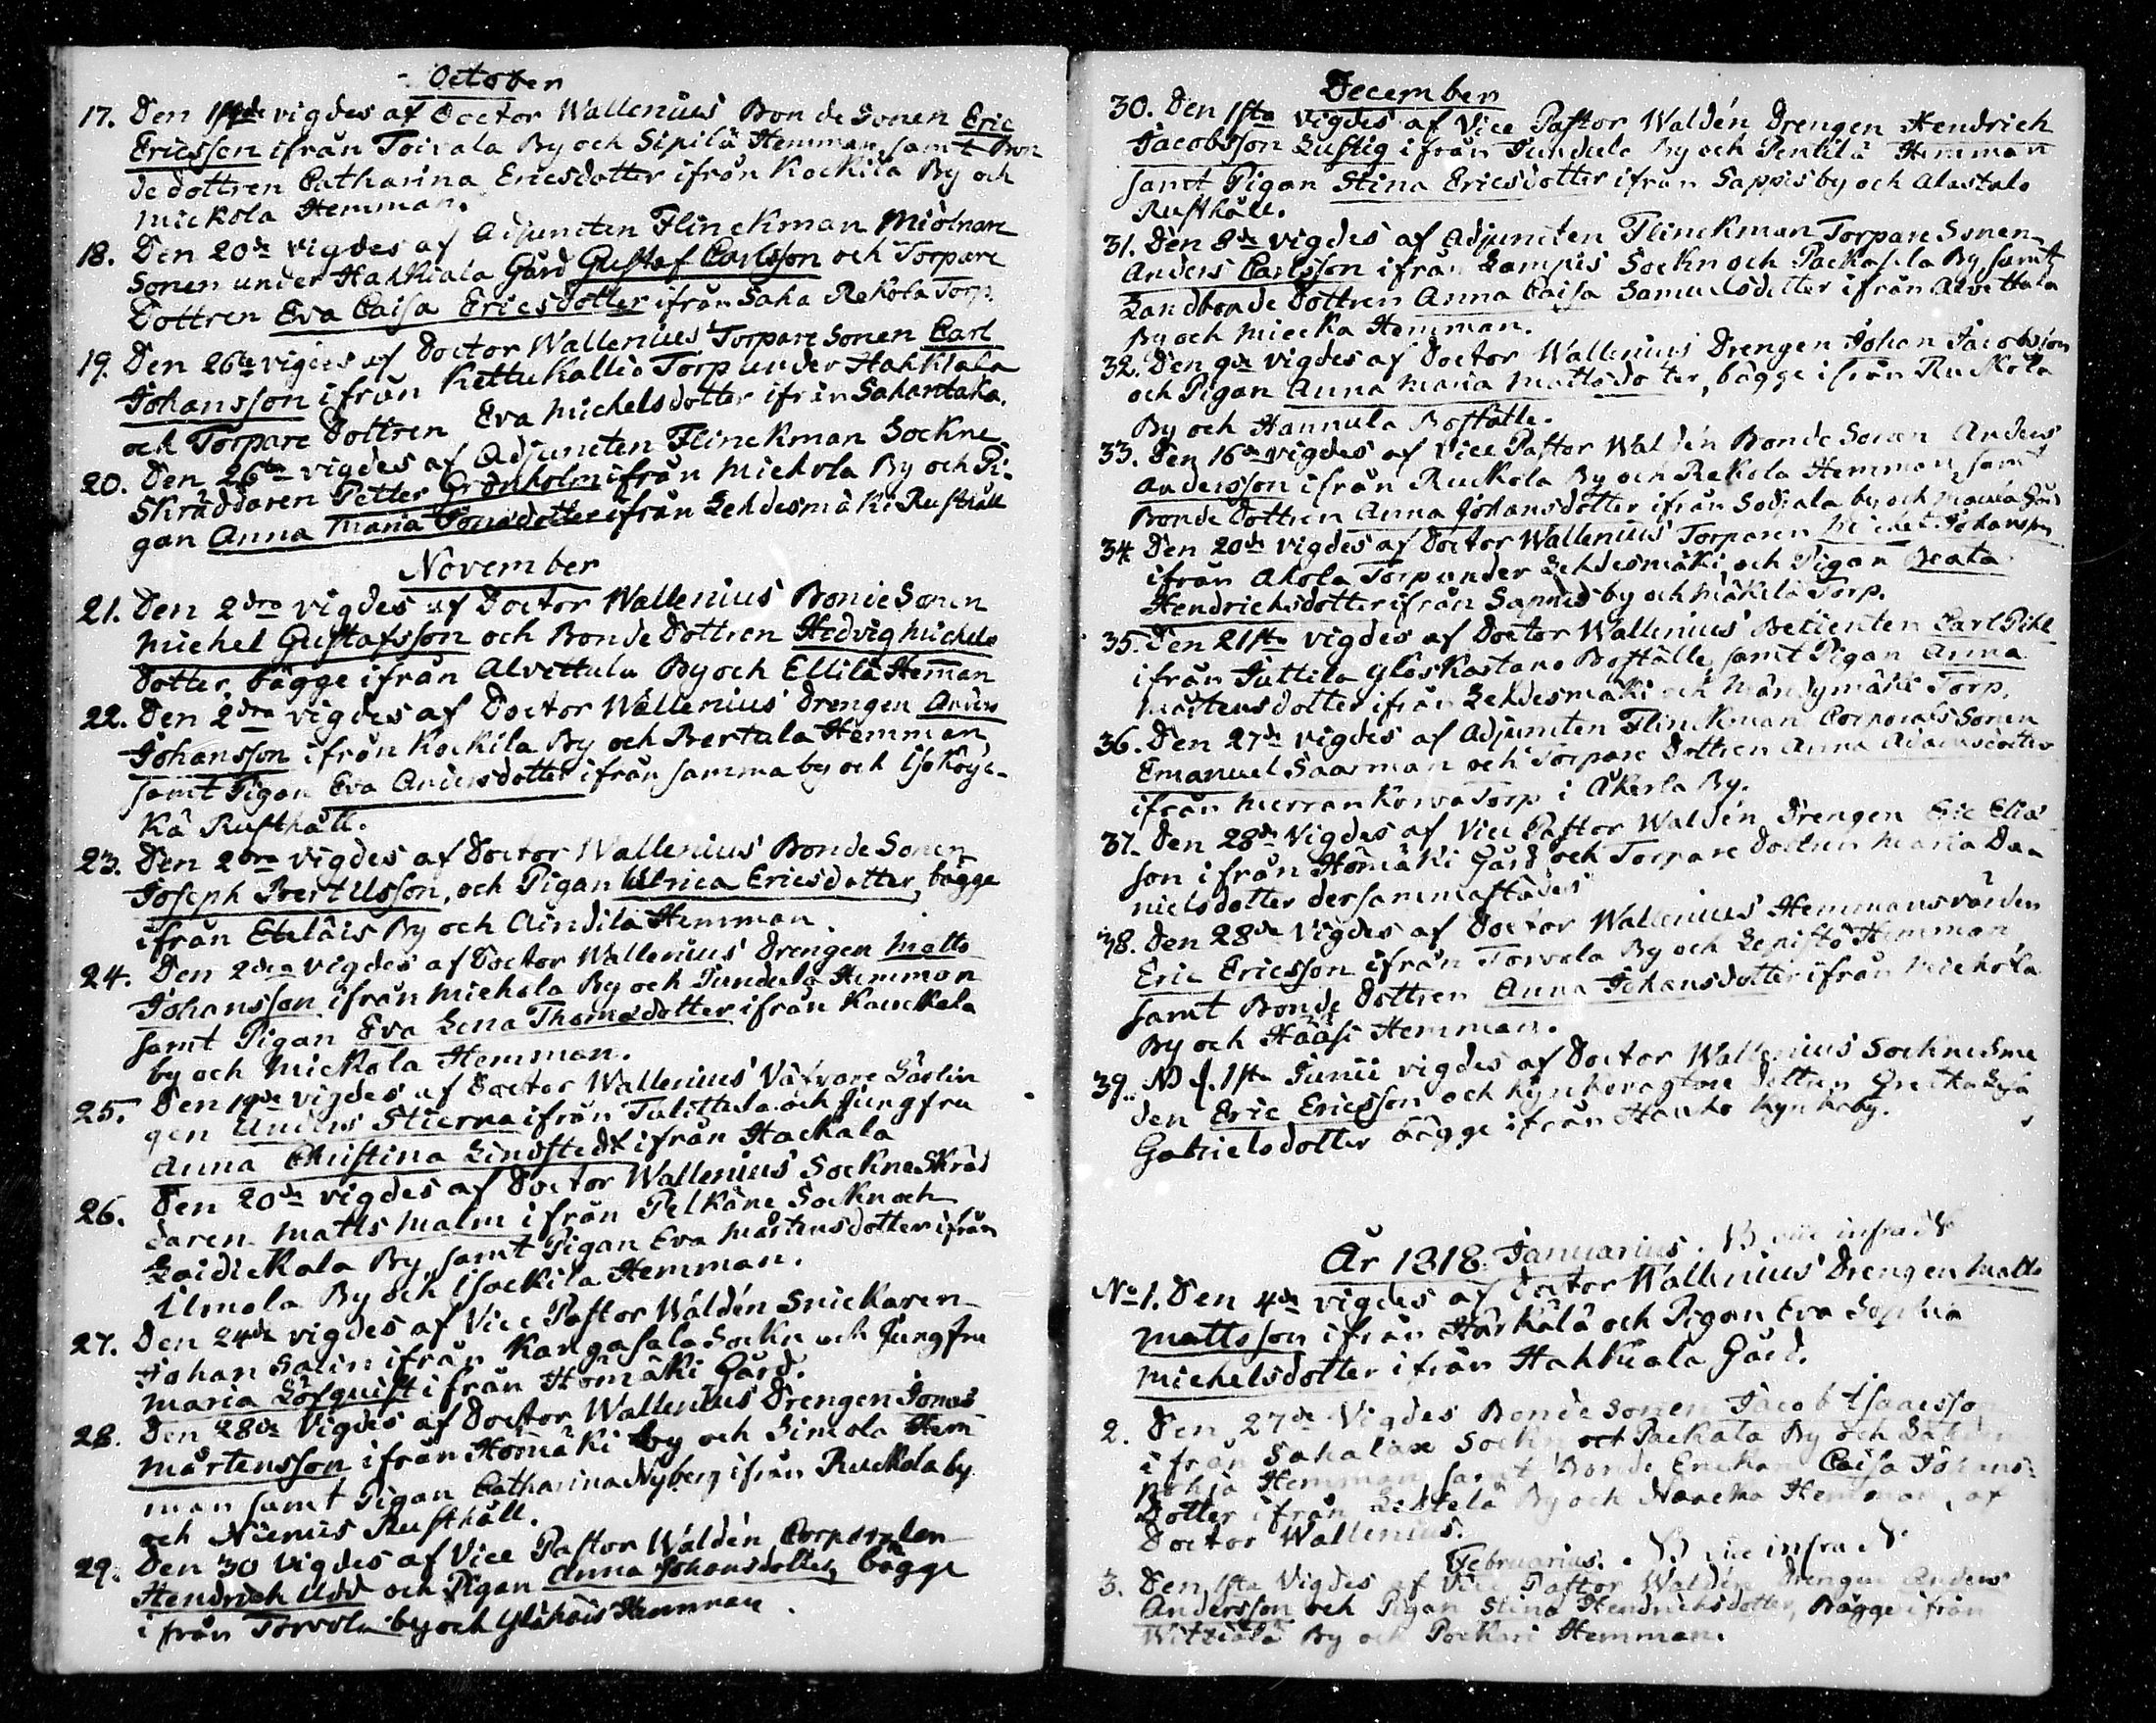 October
17. Den 19de vigdes af Doctor Wallenius Bonde Sonen Eric
Ericsson ifrån Toivala By och Sipilä Hemman, samt Bon
dedottren Catharina Ericsdotter ifrån Kockila By och
Mickola Hemman.
18. Den 20de vigdes af Adjuncten Flinckman Miölnare
Sonen under Hahkiala Gård Gustaf Carlsson och Torpare
Dottren Eva Caisa Ericsdotter ifrån Saha Rekola Torp.
19. Den 26te vigdes af Doctor Wallenius Torpare Sonen Carl
Johansson ifrån Kettukallio Torp under Hahkiala
och Torpare Dottren Eva Michelsdotter ifrån Sahantaka.
20. Den 26te vigdes af Adjuncten Flinckman Sockne
Skräddaren Petter Grönholm ifrån Mickola By och Pi-
gan Anna Maria Tomasdotter ifrån Lehdesmäki Rusthåll
November
21. Den 2dra vigdes af Doctor Wallenius Bonde Sonen
Michel Gustafsson och Bonde Dottren Hedvig Michels
Dotter, bägge ifrån Alvettula By och Ellilä Heman
22. Den 2dra vigdes af Doctor Wallenius Drengen Anders
Johansson ifrån Kockila By och Bertula Hemman
samt Pigan Eva Andersdotter ifrån samma by och Isoköyc-
kä Rusthåll.
23. Den 2dra vigdes af Doctor Wallenius Bonde Sonen
Joseph Bertilsson, och Pigan Ulrica Ericsdotter, bägge
ifrån Eteläis By och Aindila Hemman.
24. Den 2dra vigdes af Doctor Wallenius Drengen Matts
Johansson ifrån Mickola By och Tundula Hemman
samt Pigan Eva Lena Thomasdotter ifrån Kauckola
by och Mickola Hemman.
25. Den 19de vigdes af Doctor Wallenius Väfvare Lärlin
gen Anders Stierna ifrån Tulittula och Jungfru
Anna Christina Lindstedt ifrån Hackala
26. Den 20de vigdes af Doctor Wallenius Sockne Skräd
daren Matts Malm ifrån Pelkäne Sockn och
Laidickala By, samt Pigan Eva Mårtensdotter ifrån
Ilmola By och Isockila Hemman.
27. Den 24de vigdes af Vice Pastor Waldén Snickaren
Johan Salin ifrån Kangasala Sockn och Jungfru
Maria Löfquist ifrån Hömäki Gård.
28. Den 28de vigdes af Doctor Wallenius Drengen Jonas
Mårtensson ifrån Hömäki by och Simola Hem
man samt Pigan Catharina Nyberg ifrån Ruckola by
och Niemis Rusthåll.
29. Den 30 vigdes af Vice Pastor Waldén, Corporalen
Hendrich Udd och Pigan Anna Johansdotter, bägge
ifrån Torvola by och Yliknis Hemman.
December
30. Den 1sta vigdes af Vice Pastor Waldén Drengen Hendrich
Jacobsson Lustig ifrån Tundula By och Pentilä Hemman
samt Pigan Stina Ericsdotter ifrån Sappis by och Alastalo
Rusthåll.
31. Den 8de vigdes af Adjuncten Flinckman Torpare Sonen
Anders Carlsson ifrån Lampis Sockn och Packasela By samt
Landbonde Dottren Anna Caisa Samuelsdotter ifrån Alvettula
By och Miecka Hemman.
32. Den 9de vigdes af Doctor Wallenius Drengen Johan Jacobsson
och Pigan Anna Maria Mattsdotter, bägge ifrån Ruckola
By och Hannula Boställe.
33. Den 16de vigdes af Vice Pastor Waldén Bonde Sonen Anders
Andersson ifrån Ruckola By och Rekola Hemman, samt
Bonde Dottren Anna Johansdotter ifrån Sodjala by och Maula Gård
34. Den 20de vigdes af Doctor Wallenius Torparen Michel Johansson
ifrån Ahola Torp under Lehdesmäki, och Pigan Beata
Hendrichsdotter ifrån Sannis by och Mäkilä Torp.
35. Den 21sta vigdes af Doctor Wallenius Betienten Carl Pihl
ifrån Juttila Yläskastaro Boställe, samt Pigan Anna
Mårtensdotter ifrån Lehdesmäki och Mändymäki Torp.
36. Den 27de vigdes af Adjuncten Flinckman Corporals Sonen
Emanuel Saarman och Torpare Dottren Anna Adamsdotter
ifrån Murran Korva Torp i Åkerla By.
37. Den 28de Vigdes af Vice Pastor Waldén Drengen Eric Elias
son ifrån Hömäki Gård och Torpare Dottren Maria Da
nielsdotter dersammastädes
38. Den 28de Vigdes af Doctor Wallenius Hemmansvärden
Eric Ericsson ifrån Torvola By och Lepistö Hemman
samt Bonde Dottren Anna Johansdotter ifrån Mickola
By och Haasi Hemman.
39. NB d. 1sta Junii vigdes af Doctor Wallenius Socknesme
den Eric Ericsson och Kyrkovagtare Dottren Greta Lisa
Gabrielsdotter bägge ifrån Hauho Kyrkoby.
År 1818 Januarius. NB vide infra N
No 1. Den 4de vigdes af Doctor Wallenius Drengen Matts
Mattsson ifrån Härkälä och Pigan Eva Sophia
Michelsdotter ifrån Hahkiala Gård.
2. Den 27de Vigdes Bonde Sonen Jacob Isaacsson
ifrån Sahalax Sockn och Packala By och
Pohja Hemman, samt Bonde Enckan Caisa Johans-
Dotter ifrån Lehtelä By och Hemman, af
Doctor Wallenius.
Februarius. NB vide infra N
3. Den 1sta Vigdes af Vice Pastor Waldén Drengen Anders
Andersson och Pigan Stina Hendrichsdotter, Bägge ifrån
Witziälä By och Pockari Hemman.